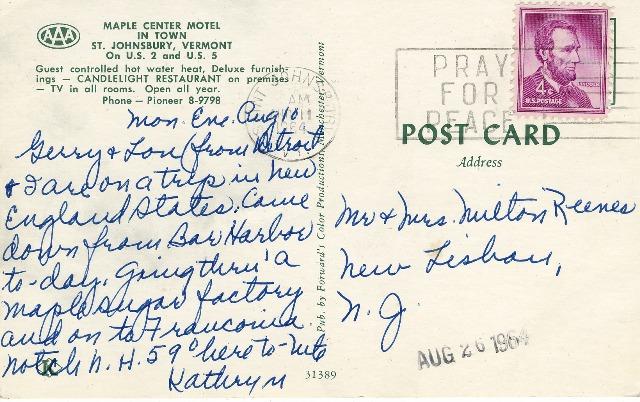 AAA
MAPLE CENTER MOTEL
IN TOWN
ST. JOHNSBURY, VERMONT
On U.S. 2 and U.S. 5
Guest controlled hot water heat, Deluxe furnish-
ings — CANDLELIGHT RESTAURANT on premises
— TV in all rooms. Open all year.
Phone — Pioneer 8-9798
Mon. Eve. Aug 10
Gerry & Lou (from Detroit)
& I are on a trip in New
England States. Came
down from Bar Harbor
to-day. Going thru' a
maple sugar factory
and on to Franconia
notch N.H. 59° here to-nite
Kathryn
K
Pub. by Forward's Color Productions, Manchester, Vermont
31389
ST JOHNSBURY
AM
VT
PRAY
FOR
PEACE
4¢
U.S. POSTAGE
POST CARD
Address
Mr & Mrs. Milton Reenes
New Lisbon,
N. J.
AUG 26 1964